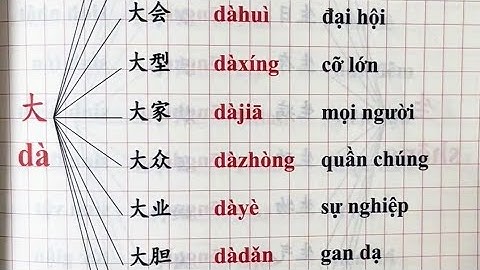 大会 dàhuì đại hội
大型 dàxíng cỡ lớn
大家 dàjiā mọi người
大众 dàzhòng quần chúng
大业 dàyè sự nghiệp
大胆 dàdǎn gan dạ
大
dà